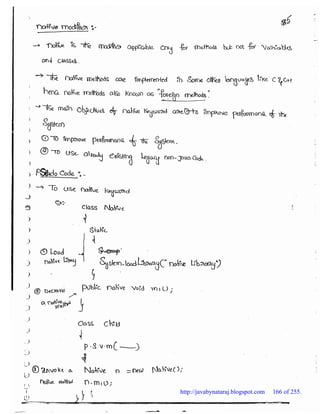 native modifier :-
→ native is the modifier applicable only for methods but not for variables
and classes.
→ The native methods are implemented in some other languages like C, C++
hence native methods also known as "foreign methods".
→ The main objectives of native keyword are ① to improve performance of the
system
① To improve performance of the system.
② To use already existing legacy non-java code.
Pseudo Code :-
→ To use native keyword
Ex:-
class Native
{
static
{
① Load
native library
System.loadLibrary("native library");
}
② Declare
a native method
public native void m1();
}
class Child
{
p.s.v.m(——)
{
③ Invoke a
native method
Native n = new Native();
n.m1();
} }
http://javabynataraj.blogspot.com 166 of 255.